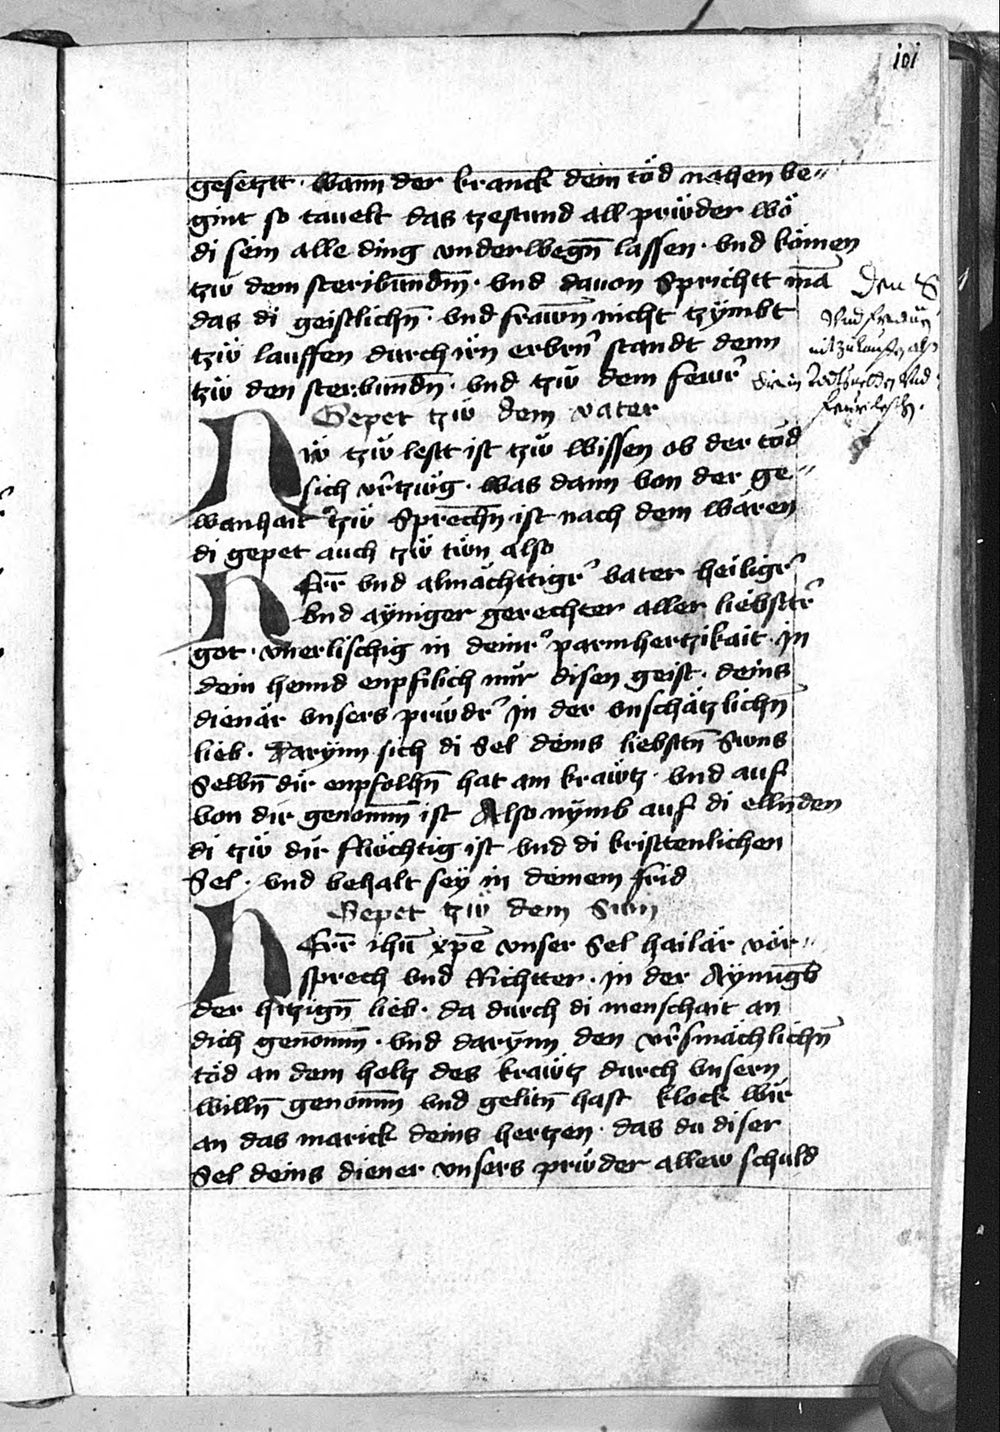 101
gesetztt · wann der kranck dem töd nahen be〃
gint so tauelt das tzestund all prüder wö
di sein alle ding vnderwegn̄ lassen · vnd kömen
tzü dem steribūndn̄ · vnd dauon Sprichtt mā
das di geistlichn̄ · vnd frawn̄ nicht tzÿmbt
tzü lauffen durch irn erbrn̄ standt denn
tzü den sterbundn̄ · vnd tzü dem fewr
Gepet tzü dem vater
Nü tzü lestt ist tzü wissen ob der töd
sich vr̄tzüg · was dann von der ge〃
wanhait tzü Sprechn̄ ist nach dem wären
di gepet auch tzü tün also
Herr vnd almächttigr vater heiligr
vnd aÿniger gerechter aller liebstr
got · vnerlischig in deinr parmhertzikait · in
dein hennd enpfilich nür disen geist · deins
dienär vnsers prüdr in der vnschätzlichn̄
lieb · Darÿnn sich di Sel deins liebstn̄ Suns
Selbn̄ dir enpfolhn̄ hat am kraütz · vnd auf
von dir genomm̄ ist Also nÿmb auf di ellnden
di tzü dir flüchtig ist vnd di kristtenlichen
Sel · vnd behalt seÿ in deinem frid
Gepet tzü dem Sun
Herr ihū xp̄e vnser Sel hailär vör〃
sprech vnd Richtter · in der Aÿnuḡ
der hitzign̄ lieb · da durch di menschait an
dich genomm̄ · vnd darÿnn den vr̄smächlichn̄
töd an dem holtz des kraütz durch vnsern
willn̄ genomm̄ vnd gelitn̄ hast klock wir
an das marick deins hertzen · das du diser
Sel deins diener vnsers prüder allew schuld